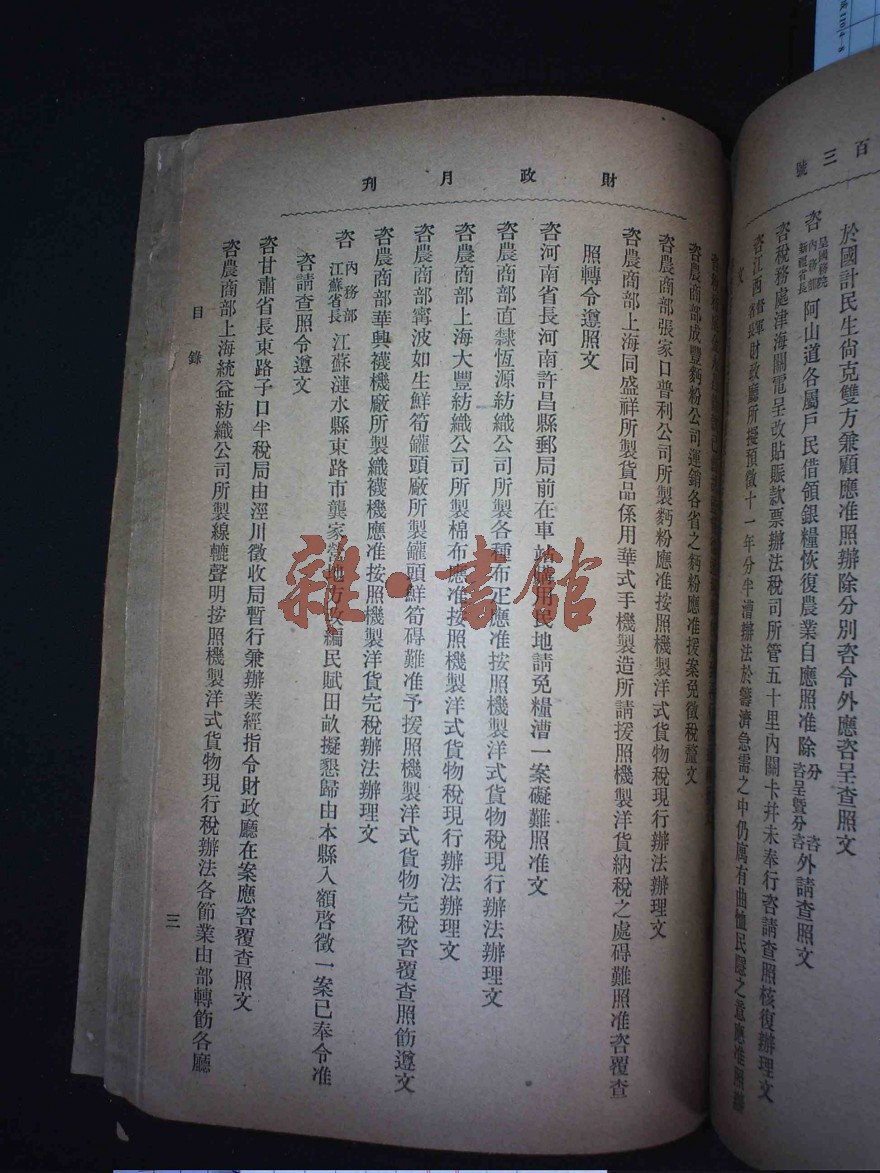 百三號
於國計民生尙克雙方兼顧應准照辦除分別咨令外應咨呈查照文
咨呈國務院內務部新疆省長阿山道各屬戶民借領銀糧恢復農業自應照准除分咨咨呈暨分咨外請查照文
咨稅務處津海關電呈改貼賑款票辦法稅司所管五十里內關卡幷未奉行咨請查照核復辦理文
咨江西督軍省長財政廳所擬預徵十一年分半漕辦法於籌濟急需之中仍寓有曲恤民隱之意應准照辦
文
財政月刊
咨農商部成豐麪粉公司運銷各省之麪粉應准援案免徵稅釐文
咨農商部張家口普利公司所製麪粉應准按照機製洋式貨物稅現行辦法辦理文
咨農商部上海同盛祥所製貨品係用華式手機製造所請援照機製洋貨納稅之處碍難照准咨覆查
照轉令遵照文
咨河南省長河南許昌縣郵局前在車站購用民地請免糧漕一案礙難照准文
咨農商部直隸恆源紡織公司所製各種布疋應准按照機製洋式貨物稅現行辦法辦理文
咨農商部上海大豐紡織公司所製棉布應准按照機製洋式貨物稅現行辦法辦理文
咨農商部寗波如生鮮筍罐頭廠所製罐頭鮮筍碍難准予援照機製洋式貨物完稅咨覆查照飭遵文
咨農商部華興襪機廠所製織襪機應准按照機製洋貨完稅辦法辦理文
咨內務部江蘇省長江蘇漣水縣東路市龔家營地方改編民賦田畝擬懇歸由本縣入額啓徵一案已奉令准
咨請查照令遵文
咨甘肅省長東路子口半稅局由涇川徵收局暫行兼辦業經指令財政廳在案應咨覆查照文
咨農商部上海統益紡織公司所製線轆聲明按照機製洋式貨物現行稅辦法各節業由部轉飭各廳
目錄
三
雜·書館